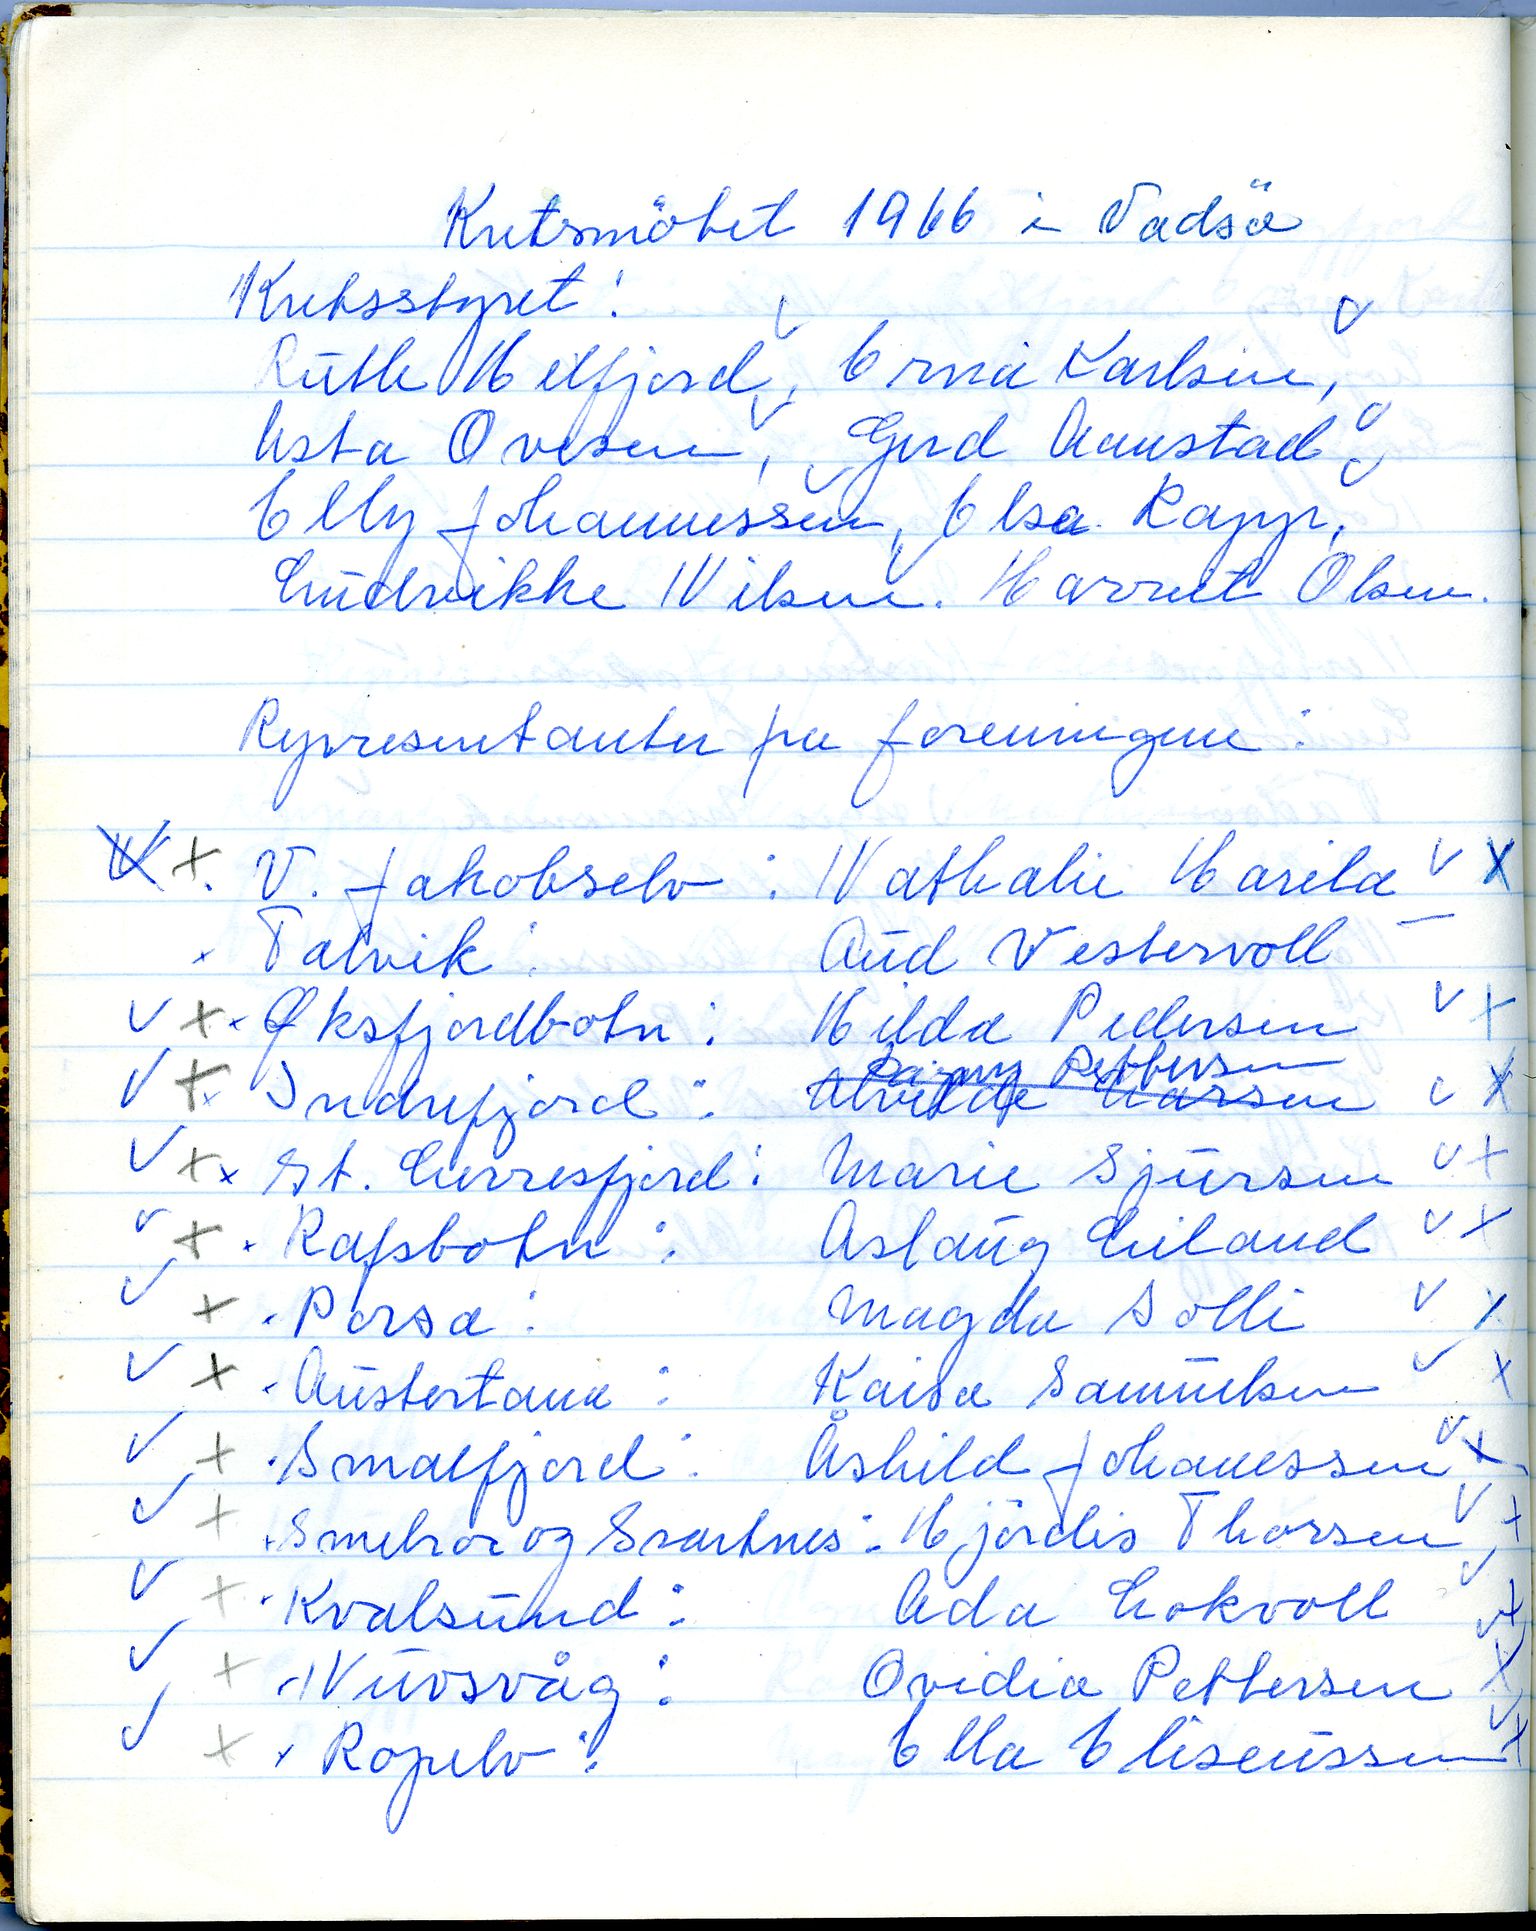 Kretsmötet 1966 i Vadsö
Kretsstyret:
Ruth Melfjord, Erna Karlsen,
Asta Ovesen, Gerd Aanstad,
Elly Johannessen, Elsa Rapp,
Ludvikke Nilsen. Harriet Olsen.
Representanter fra foreningene:
V. Jakobselv: Nathalie Harila
Talvik: Aud Vestervoll
Øksfjordbotn: Hilda Pedersen
Dagny Pettersen
Indrefjord: Alvilde Larsen
St. Lerresfjord: Marie Sjursen
Rafsbotn: Aslaug Eiland
Porsa: Magda Solli
Austertana: Kaisa Samuelsen
Smalfjord: Åshild Johanessen
Smelror og Svartnes: Hjördis Thorsen
Kvalsund: Ada Lokvoll
Nuvsvåg: Ovidia Pettersen
Ropelv: Ella Eliseussen